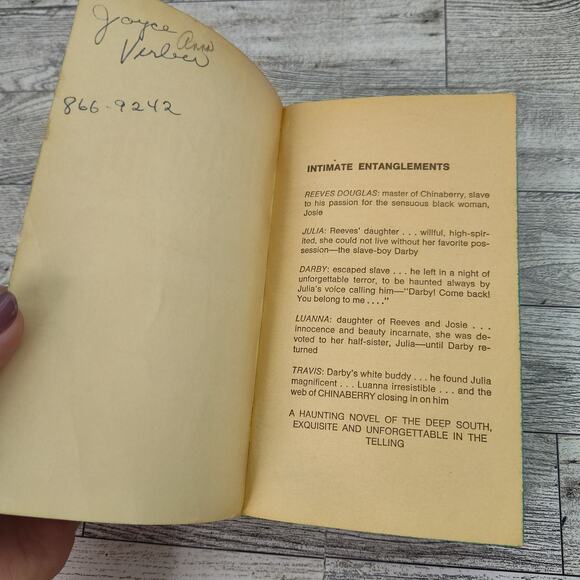 Joyce Ann
Verber
866-9242
INTIMATE ENTANGLEMENTS
REEVES DOUGLAS: master of Chinaberry, slave
to his passion for the sensuous black woman,
Josie
JULIA: Reeves' daughter . . . willful, high-spir-
ited, she could not live without her favorite pos-
session—the slave-boy Darby
DARBY: escaped slave . . . he left in a night of
unforgettable terror, to be haunted always by
Julia's voice calling him—"Darby! Come back!
You belong to me . . . ."
LUANNA: daughter of Reeves and Josie . . .
innocence and beauty incarnate, she was de-
voted to her half-sister, Julia—until Darby re-
turned
TRAVIS: Darby's white buddy . . . he found Julia
magnificent . . . Luanna irresistible . . . and the
web of CHINABERRY closing in on him
A HAUNTING NOVEL OF THE DEEP SOUTH,
EXQUISITE AND UNFORGETTABLE IN THE
TELLING